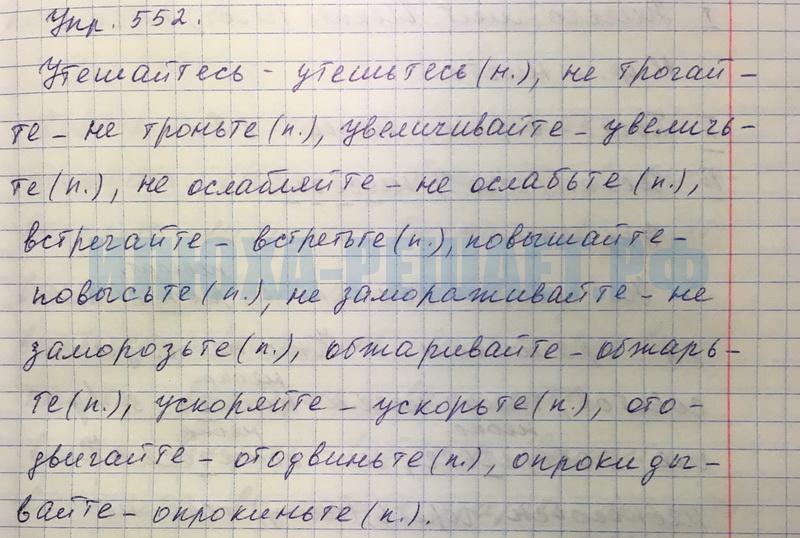 Упр. 552.
Утешайтесь - утешьтесь (н.), не трогай-
те - не троньте (п.), увеличивайте - увеличь-
те (п.), не ослабляйте - не ослабьте (п.),
встречайте - встретьте (п.), повышайте -
ИНОХА-РЕШАЕТ.РФ
повысьте (п.), не замораживайте - не
заморозьте (п.), обжаривайте - обжарь-
те (п.), ускоряйте - ускорьте (п.), ото-
двигайте - отодвиньте (п.), опрокиды-
вайте - опрокиньте (п.).